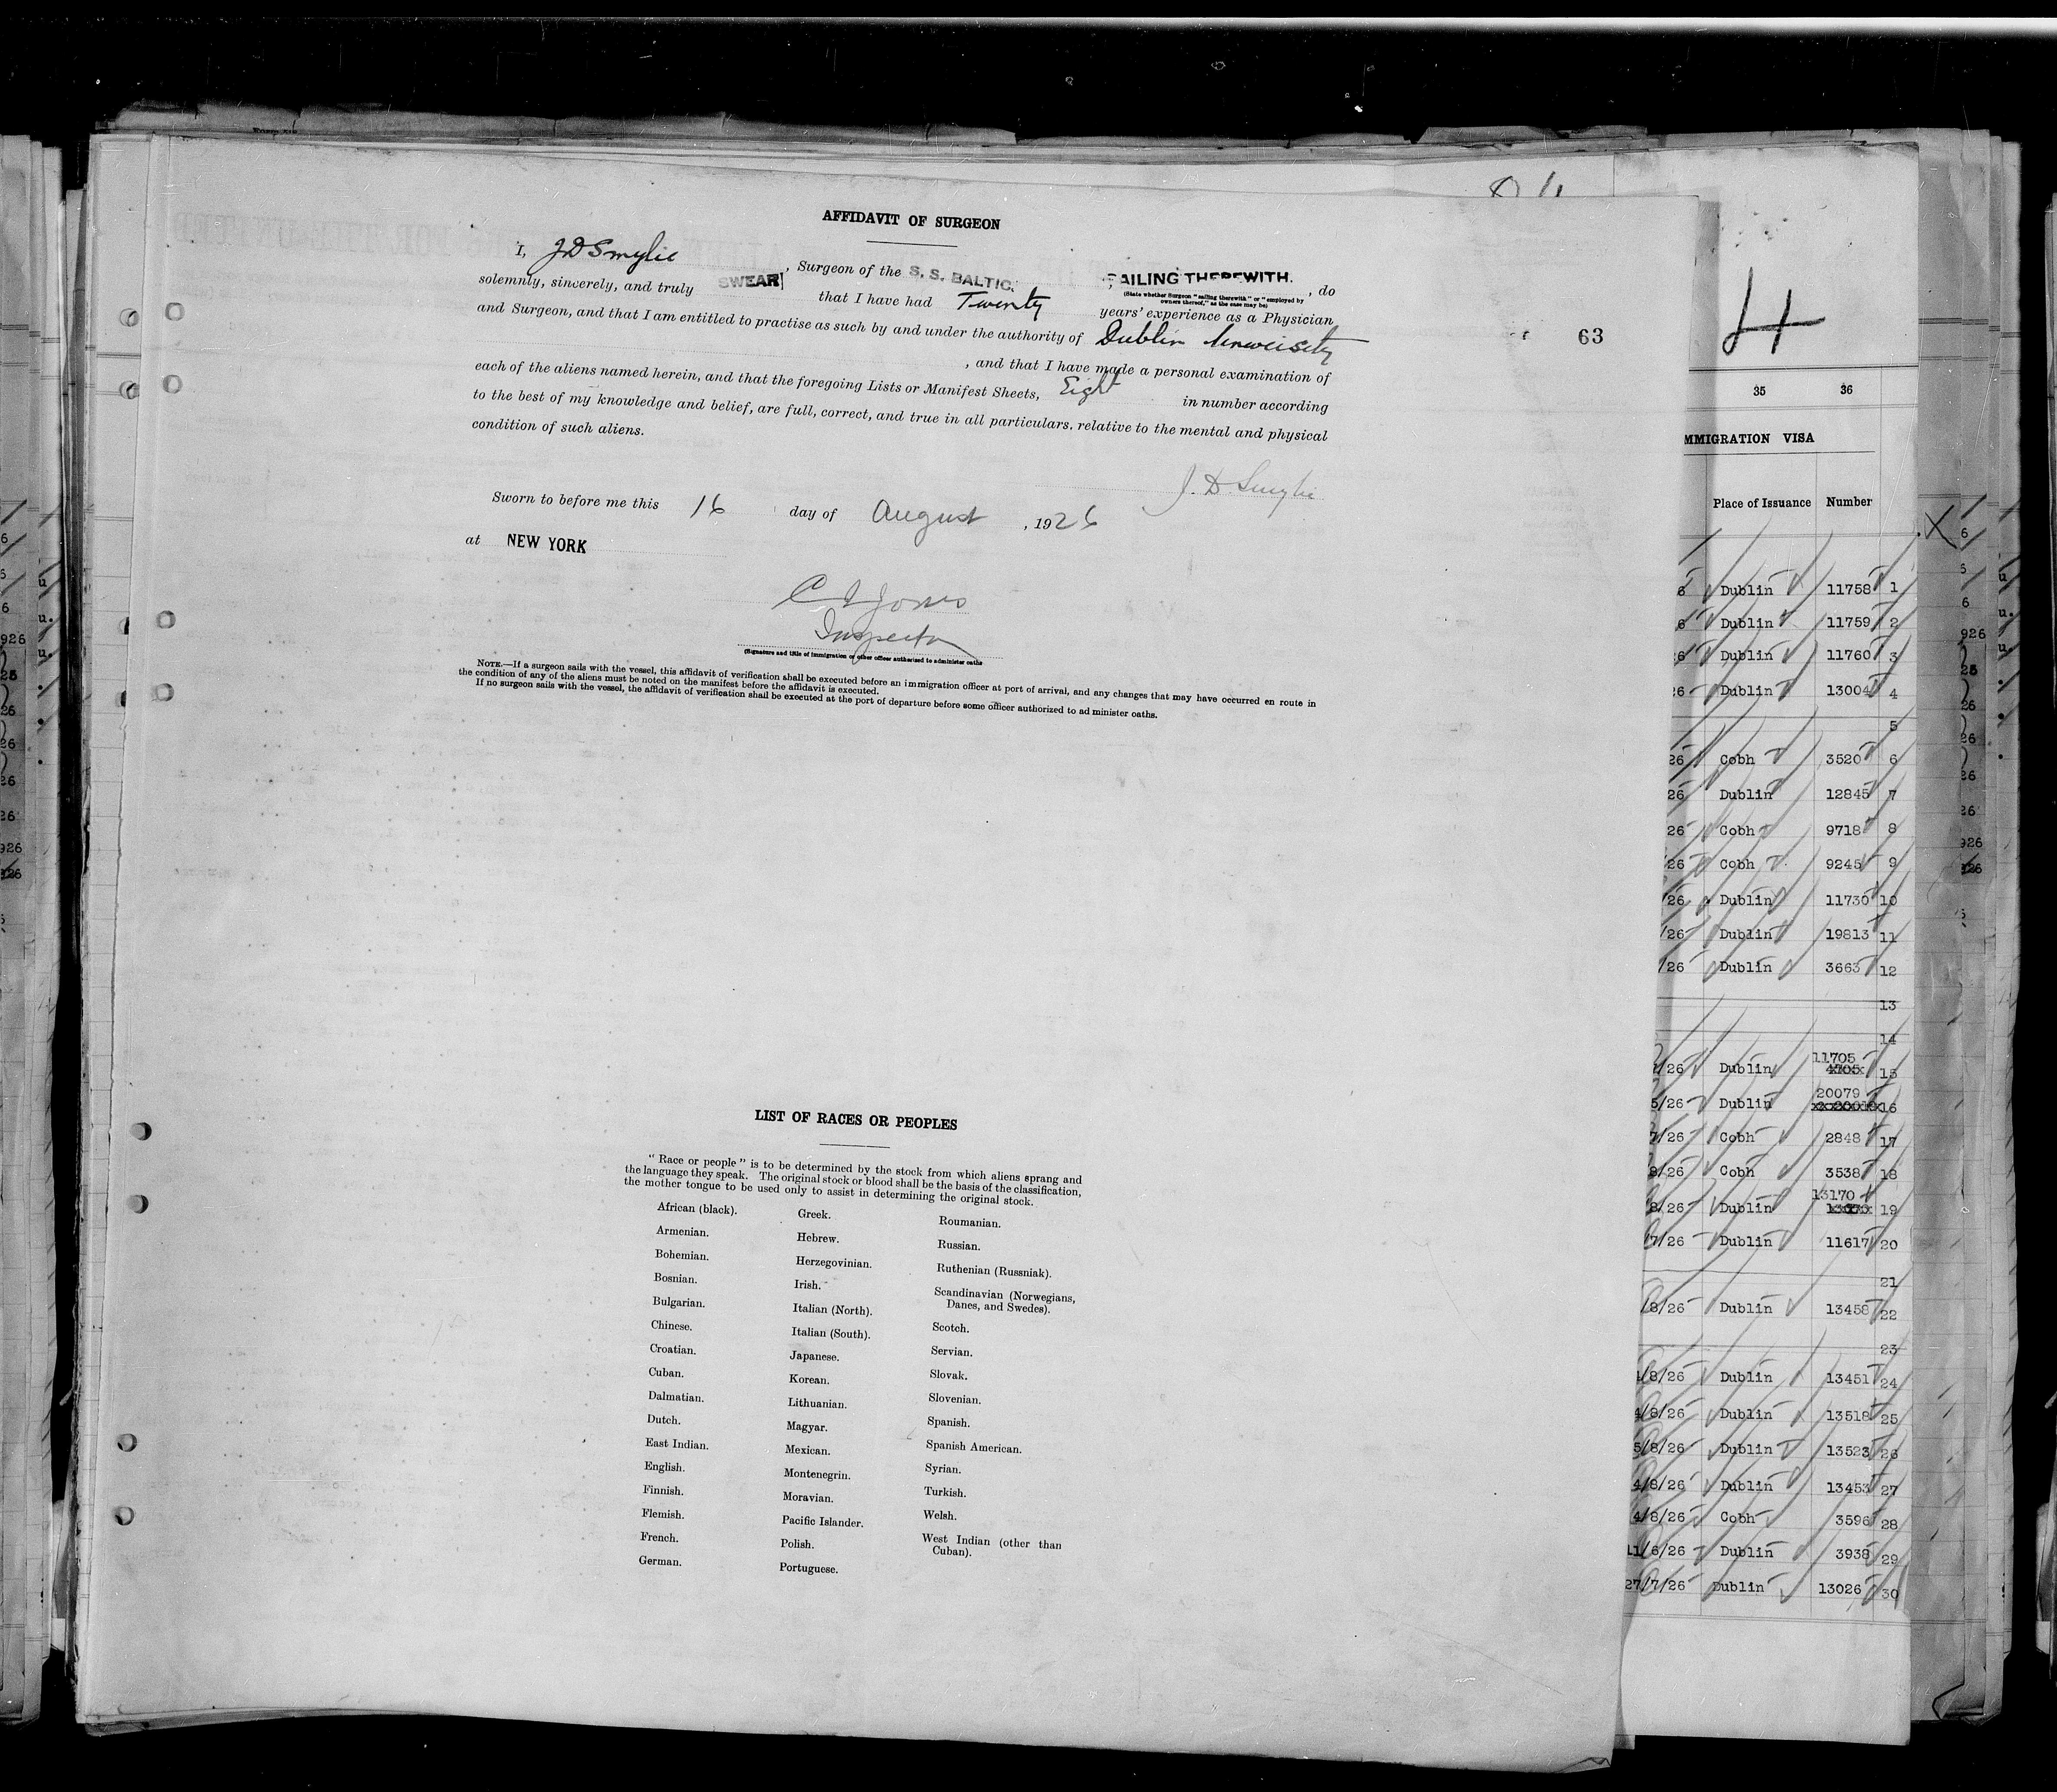 AFFIDAVIT OF SURGEON
I, J D Smylie, Surgeon of the S. S. BALTIC. SAILING THEREWITH. , do
(State whether Surgeon "sailing therewith" or "employed by
owners thereof," as the case may be)
solemnly, sincerely, and truly SWEAR that I have had Twenty years' experience as a Physician
and Surgeon, and that I am entitled to practise as such by and under the authority of Dublin University
, and that I have made a personal examination of
each of the aliens named herein, and that the foregoing Lists or Manifest Sheets, Eight in number according
to the best of my knowledge and belief, are full, correct, and true in all particulars, relative to the mental and physical
condition of such aliens.
J. D. Smylie
Sworn to before me this 16 day of August , 1926
at NEW YORK
C I Jones
Inspector
(Signature and title of immigration or other officer authorized to administer oaths
NOTE.—If a surgeon sails with the vessel, this affidavit of verification shall be executed before an immigration officer at port of arrival, and any changes that may have occurred en route in
the condition of any of the aliens must be noted on the manifest before the affidavit is executed.
If no surgeon sails with the vessel, the affidavit of verification shall be executed at the port of departure before some officer authorized to ad minister oaths.
63
LIST OF RACES OR PEOPLES
"Race or people" is to be determined by the stock from which aliens sprang and
the language they speak. The original stock or blood shall be the basis of the classification,
the mother tongue to be used only to assist in determining the original stock.
African (black).
Armenian.
Bohemian.
Bosnian.
Bulgarian.
Chinese.
Croatian.
Cuban.
Dalmatian.
Dutch.
East Indian.
English.
Finnish.
Flemish.
French.
German.
Greek.
Hebrew.
Herzegovinian.
Irish.
Italian (North).
Italian (South).
Japanese.
Korean.
Lithuanian.
Magyar.
Mexican.
Montenegrin.
Moravian.
Pacific Islander.
Polish.
Portuguese.
Roumanian.
Russian.
Ruthenian (Russniak).
Scandinavian (Norwegians,
Danes, and Swedes).
Scotch.
Servian.
Slovak.
Slovenian.
Spanish.
Spanish American.
Syrian.
Turkish.
Welsh.
West Indian (other than
Cuban).
4
35 36
MMIGRATION VISA
Place of Issuance Number
6 Dublin 11758 1
6 Dublin 11759 2
26 Dublin 11760 3
26 Dublin 13004 4
5
26 Cobh 3520 6
26 Dublin 12845 7
26 Cobh 9718 8
/26 Cobh 9245 9
/26 Dublin 11730 10
/26 Dublin 19813 11
/26 Dublin 3663 12
13
14
/26 Dublin 11705 15
5/26 Dublin 20079 16
7/26 Cobh 2848 17
8/26 Cobh 3538 18
8/26 Dublin 13170 19
7/26 Dublin 11617 20
21
/8/26 Dublin 13458 22
23
4/8/26 Dublin 13451 24
4/8/26 Dublin 13518 25
5/8/26 Dublin 13523 26
4/8/26 Dublin 13453 27
4/8/26 Cobh 3596 28
11/6/26 Dublin 3938 29
27/7/26 Dublin 13026 30